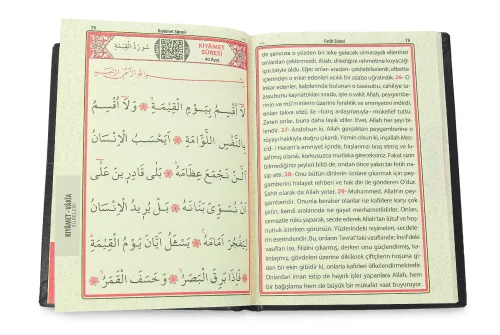 79
Kıyâmet Sûresi
سُورَةُ الْقِيٰمَةِ
KIYÂMET
SÛRESİ
40 Ayet
لَٓا اُقْسِمُ بِيَوْمِ الْقِيٰمَةِ ۞ وَلَٓا اُقْسِمُ
بِالنَّفْسِ اللَّوَّامَةِ ۞ اَيَحْسَبُ الْاِنْسَانُ
اَلَّنْ نَجْمَعَ عِظَامَهُ ۞ بَلٰى قَادِر۪ينَ عَلٰٓى
اَنْ نُسَوِّيَ بَنَانَهُ ۞ بَلْ يُر۪يدُ الْاِنْسَانُ
لِيَفْجُرَ اَمَامَهُ ۞ يَسْـَٔلُ اَيَّانَ يَوْمُ الْقِيٰمَةِ
۞ فَاِذَا بَرِقَ الْبَصَرُ ۞ وَخَسَفَ الْقَمَرُ ۞
KIYÂMET - VÂKIA
SÛRELERİ
Fetih Sûresi
de şanınıza o yüzden bir leke gelecek olmasaydı ellerinizi
onlardan çektirmezdi. Allah, dilediğini rahmetine koyacağı
için böyle oldu. Eğer onlar aradan çekilebilselerdi, elbette
içlerinden o inkar edenleri acıklı bir azaba uğratırdık. 26- O
inkar edenler, kalplerinde bulunan o taassubu, cahiliye ta-
assubunu kaynattıkları sırada, işte o vakit Allah, peygambe-
rinin ve mü'minlerin üzerine ferahlık ve emniyetini indirdi,
onları takva sözü ile mükellef tuttu.
Zaten onlar, buna daha layık idiler. Evet, Allah her şeyi bi-
lendir. 27- Andolsun ki, Allah gerçekten peygamberine o
rüyayı hakkıyla doğru çıkardı. Yemin olsun ki, inşallah Mes-
cid-i Haram'a emniyet içinde, başlarınızı tıraş etmiş ve kı-
saltmış olarak, korkusuzca mutlaka gireceksiniz. Fakat sizin
bilmediğiniz şeyleri bildi de, ondan önce yakın bir fetih na-
sip etti. 28- Onu bütün dinlerin üstüne çıkarmak için pey-
gamberini hidayet rehberi ve hak din ile gönderen O'dur.
Şahit olarak da Allah yeter. 29- Muhammed, Allah'ın pey-
gamberidir. Onunla beraber olanlar ise kafirlere karşı çok
çetin, kendi aralarında ise gayet merhametlidirler. Onları,
cemaatle rüku yaparak, secde ederek Allah'tan lütuf ve hoş-
nutluk isterken görürsün. Yüzlerindeki nişaneleri, secdele-
rin eserindendir. Bu, onların Tevrat'taki vasıflarıdır, İncil'deki
vasıfları ise, filizini çıkarmış, derken onu güçlendirmiş, ka-
lınlaşmış, gövdeleri üzerine dikilerek çiftçilerin hoşuna gi-
den bir ekin gibidir ki, onlarla kafirleri öfkelendirmektedir.
Onlardan iman edip de hayırlı işler yapanlara Allah, hem
bir bağışlama hem de büyük bir mükafat vaat buyuruyor.